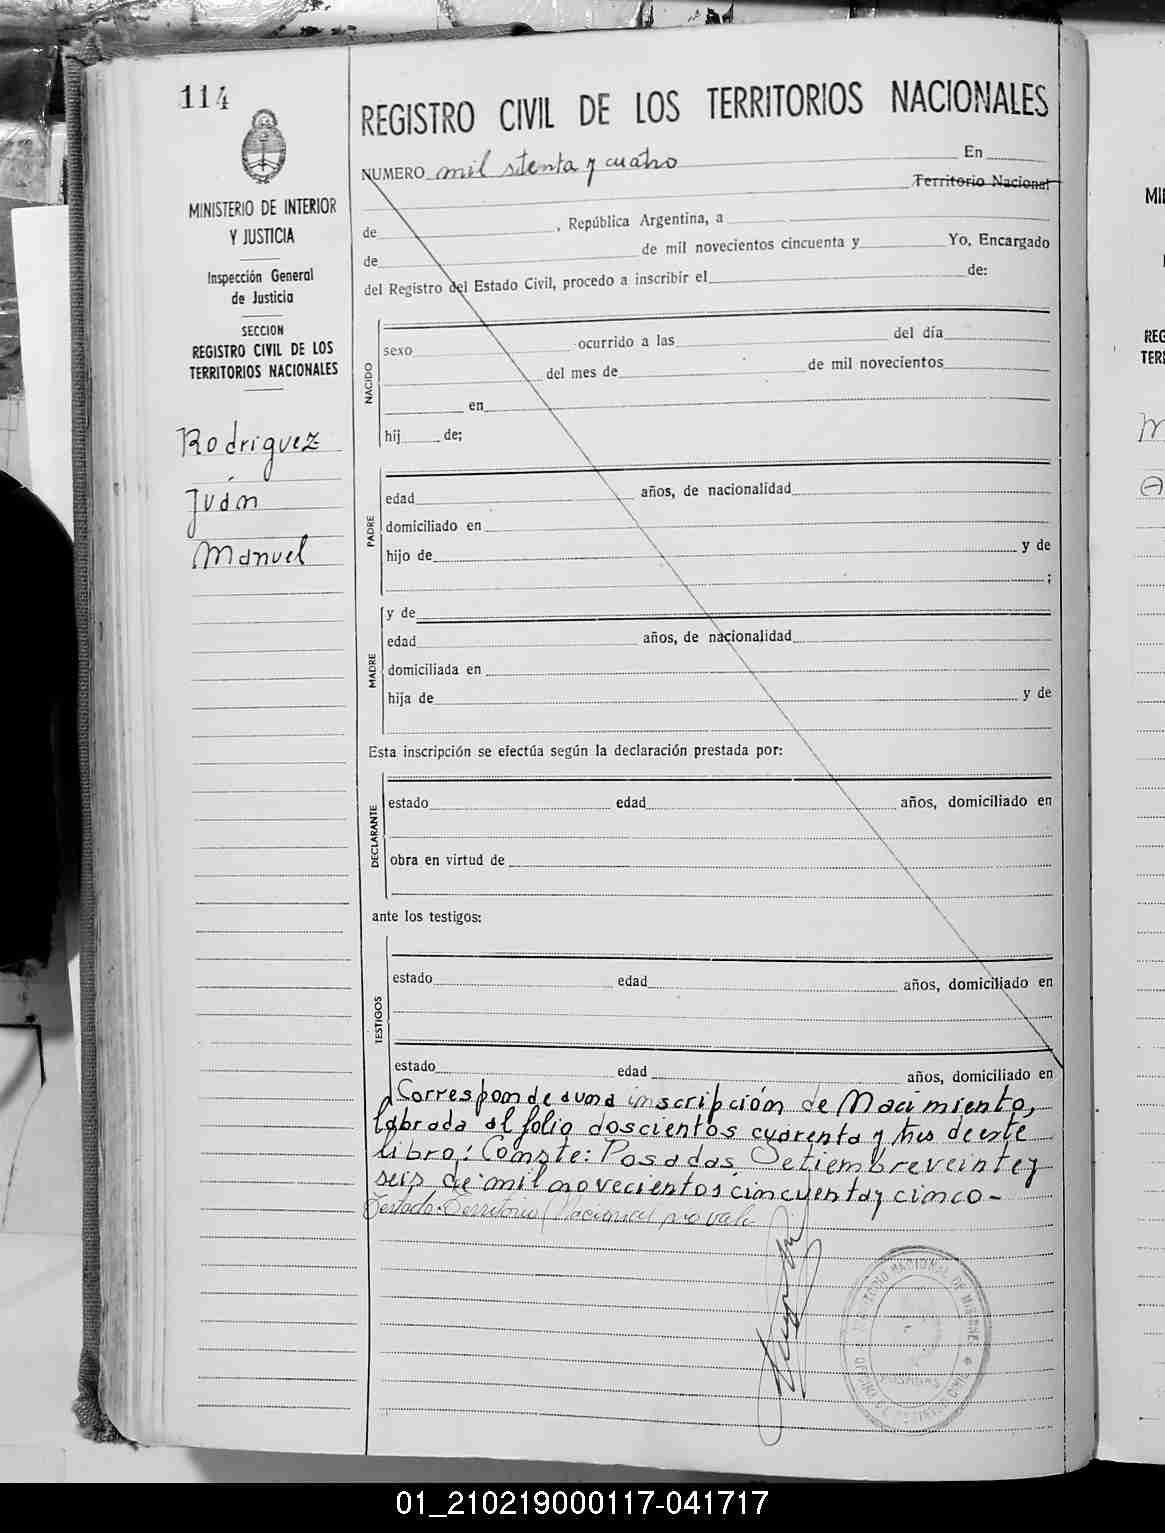 114
REGISTRO CIVIL DE LOS TERRITORIOS NACIONALES
NUMERO mil stenta y cuatro En
Territorio Nacional
MINISTERIO DE INTERIOR
Y JUSTICIA
de , República Argentina, a
de de mil novecientos cincuenta y Yo, Encargado
Inspección General
de Justicia
del Registro del Estado Civil, procedo a inscribir el de:
SECCION
REGISTRO CIVIL DE LOS
TERRITORIOS NACIONALES
NACIDO
sexo ocurrido a las del día
del mes de de mil novecientos
en
hij de;
Rodriguez
Juán
Manuel
PADRE
edad años, de nacionalidad
domiciliado en
hijo de y de
;
MADRE
y de
edad años, de nacionalidad
domiciliada en
hija de y de
Esta inscripción se efectúa según la declaración prestada por:
DECLARANTE
estado edad años, domiciliado en
obra en virtud de
ante los testigos:
TESTIGOS
estado edad años, domiciliado en
estado edad años, domiciliado en
Corresponde a una inscripción de Nacimiento,
labrada al folio doscientos cuarenta y tres de este
libro: Conste: Posadas, Setiembre veinte y
seis de mil novecientos cincuenta y cinco-
Testado: Territorio Nacional no vale
TERRITORIO NACIONAL DE MISIONES
POSADAS
OFICINA DE REGISTRO CIVIL
MI
REG
TERR
01_210219000117-041717